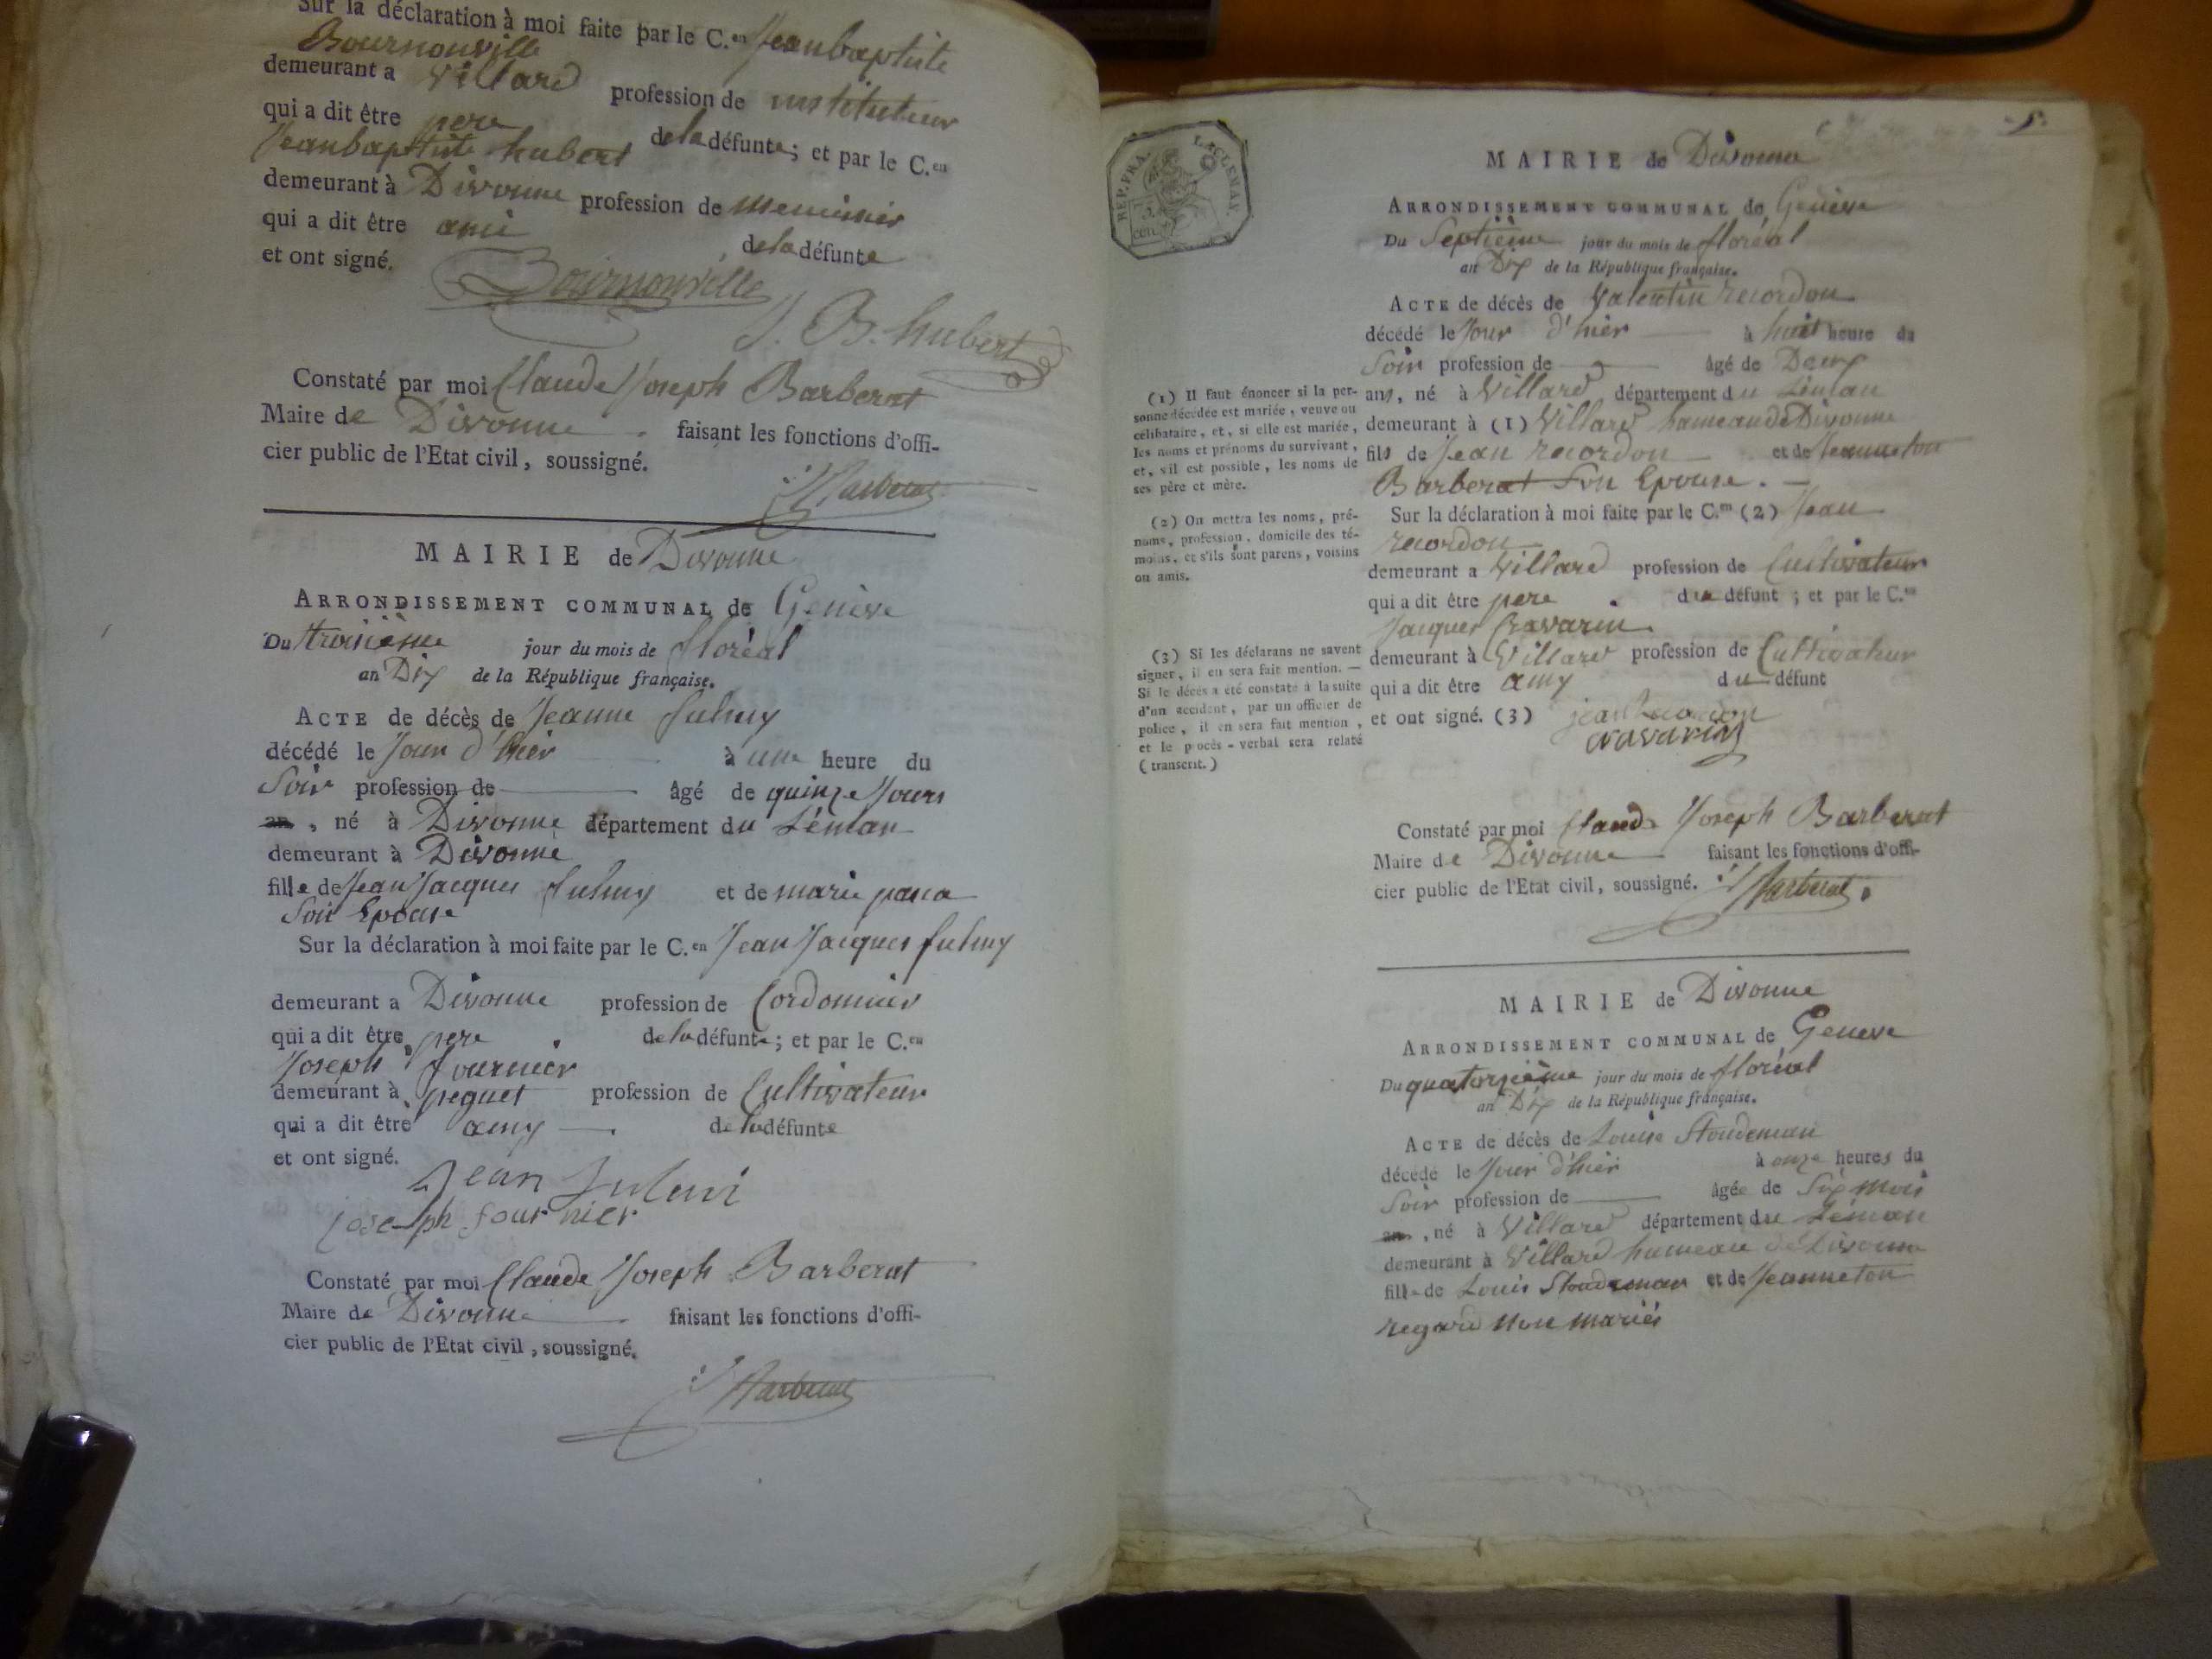 Sur la déclaration à moi faite par le C.en Jeanbaptiste
Bournonville
demeurant a Villard profession de instituteur
qui a dit être pere de la défunte; et par le C.en
Jeanbaptiste hubert
demeurant à Divonne profession de menuisier
qui a dit être ami de la défunte
et ont signé.
Bournonville
J. B. hubert
Constaté par moi Claude Joseph Barberat
Maire de Divonne faisant les fonctions d'offi-
cier public de l'Etat civil, soussigné.
Barberat
MAIRIE de Divonne
ARRONDISSEMENT COMMUNAL de Genève
Du troisième jour du mois de floréal
an Dix de la République française.
ACTE de décès de Jeanne
décédé le Jour d'hier à une heure du
Soir profession de âgé de quinze Jours
an, né à Divonne département du Léman
demeurant à Divonne
fille de Jean Jacques et de marie
Son Epouse
Sur la déclaration à moi faite par le C.en Jean Jacques
demeurant a Divonne profession de Cordonnier
qui a dit être pere de la défunte; et par le C.en
Joseph fournier
demeurant à profession de Cultivateur
qui a dit être amy de la défunte
et ont signé.
Jean
joseph fournier
Constaté par moi Claude Joseph Barberat
Maire de Divonne faisant les fonctions d'offi-
cier public de l'Etat civil, soussigné.
Barberat
5.
REP. FRA.
MAIRIE de Divonne
ARRONDISSEMENT COMMUNAL de Genève
Du Septième jour du mois de floréal
an Dix de la République française.
ACTE de décès de Valentin recordon
décédé le Jour d'hier à huit heure du
Soir profession de âgé de Deux
ans, né à Villard département du Léman
demeurant à (1) Villard hameau de Divonne
fils de Jean recordon et de Jeanneton
Barberat Son Epouse.
Sur la déclaration à moi faite par le C.en (2) Jean
recordon
demeurant a Villard profession de Cultivateur
qui a dit être pere du défunt; et par le C.en
Jacques Cravarin
demeurant à Villard profession de Cultivateur
qui a dit être amy du défunt
et ont signé. (3) jean Recordon
cravarin
(1) Il faut énoncer si la per-
sonne décédée est mariée, veuve ou
célibataire, et, si elle est mariée,
les noms et prénoms du survivant,
et, s'il est possible, les noms de
ses père et mère.
(2) On mettra les noms, pré-
noms, profession, domicile des té-
moins, et s'ils sont parens, voisins
ou amis.
(3) Si les déclarans ne savent
signer, il en sera fait mention. —
Si le décès a été constaté à la suite
d'un accident, par un officier de
police, il en sera fait mention,
et le procès-verbal sera relaté
(transcrit.)
Constaté par moi Claude Joseph Barberat
Maire de Divonne faisant les fonctions d'offi-
cier public de l'Etat civil, soussigné.
Barberat
MAIRIE de Divonne
ARRONDISSEMENT COMMUNAL de Geneve
Du quatorzième jour du mois de floréal
an Dix de la République française.
ACTE de décès de Louise Stoudeman
décédé le Jour d'hier à onze heures du
Soir profession de âgée de Six mois
an, né à Villard département du Léman
demeurant à Villard hameau de Divonne
fille de Louis Stoudeman et de Jeanneton
regard non mariés